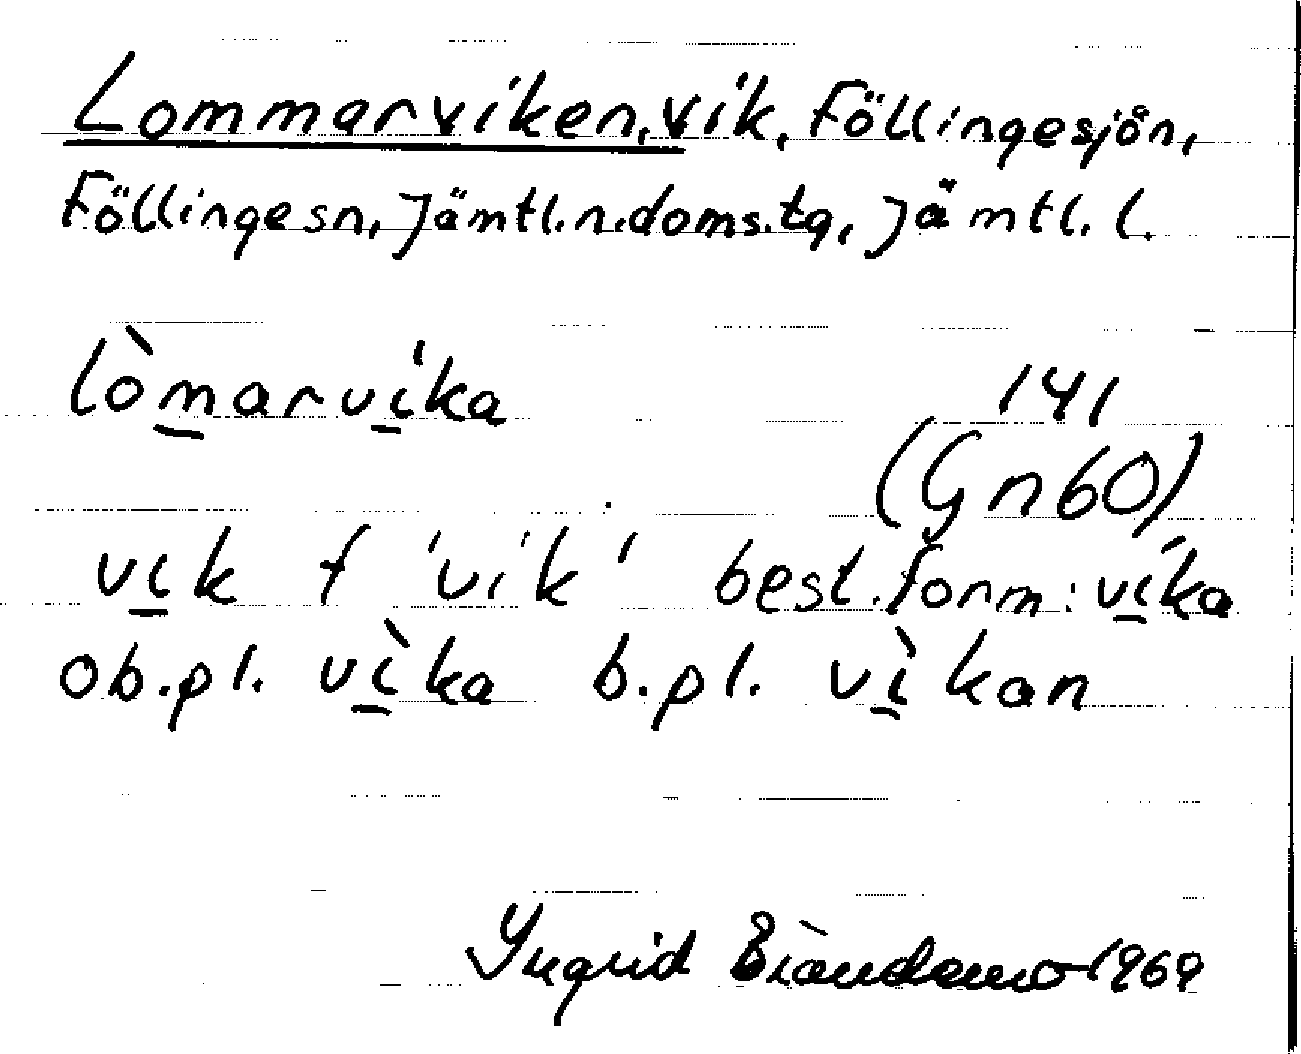 Lommarviken, vik, Föllingesjön,
Föllingesn, Jämtl.n.doms.tg, Jämtl. l.
lòmarvi̱ka
141
(Gn60)
vi̱k f 'vik' best.form: ví̱ka
ob.pl. vì̱ka b.pl. vì̱kan
Ingrid 1969